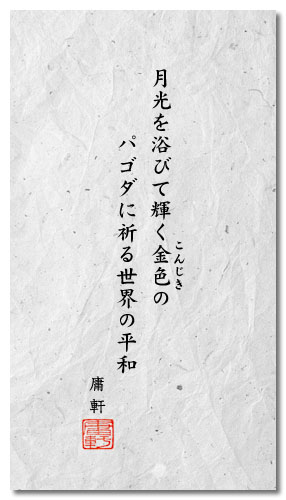 月光を浴びて輝く金色の
こんじき
パゴダに祈る世界の平和
庸軒
庸軒